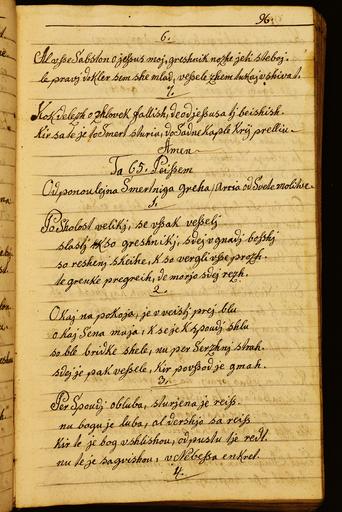 96.
6.
Al vsse Sabston o jessus moj, greshnik nozhe jeti steboj.
le pravj dokler sem she mlad, vessele zhem tukaj vshivat.
7.
Kok delezh ozhlovek fallish, de od jessusa tj beishish.
Kir sa te je to Smert sturiu, do Sadne kaple Krij prelliu.
Amen
Ta 65. Peissem
Od ponoulejna Smertniga greka, Arcia od Svete molitue.
1.
Posholost velikj, se vssak vesselj
slastj so greshnikj, sdej vgnadj boshj
so reshenj skerbe, K so vergli vse prozh.
te greuke pregreih, de morjo sdej rezh.
2.
O kaj na pokoja, je v veistj prej blu
o kaj Sena maja, k se je k spoudj shlu
so ble bridke shele, nu per Serzhnj strah.
sdej je pak vessele, Kir povssod je gmah.
3.
Per Spoudj obluba, sturjena je reiss.
nu bogu je luba, al dershjo sa reiss
Kir te je bog vshlishou, odpustu tje redt.
nu te je sagvishou, v Nebessa en kret.
4.